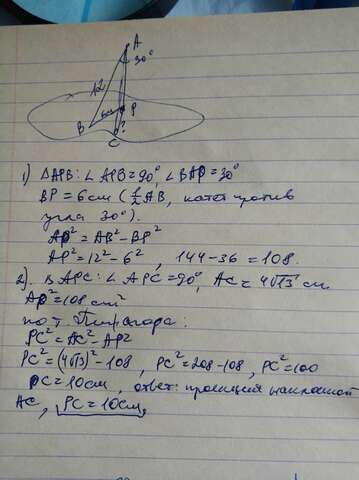 A
30°
12
6см
P
B
?
C
1) ΔAPB: ∠APB=90°, ∠BAP=30°
BP=6см (½AB, катет против
угла 30°).
AP²=AB²-BP²
AP²=12²-6², 144-36=108.
2). ΔAPC: ∠APC=90°, AC=4√13 см
AP²=108 cm²
по т. Пифагора:
PC²=AC²-AP²
PC²=(4√13)²-108, PC²=208-108, PC²=100
PC=10см, ответ: проекция наклонной
AC, PC=10см.